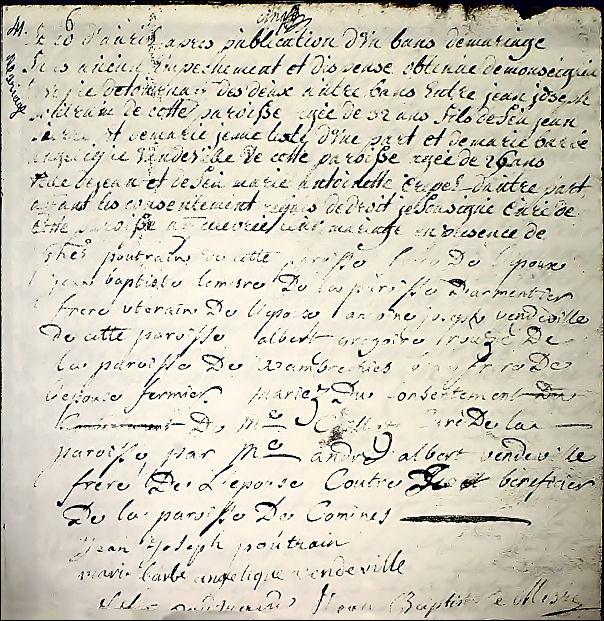 6
cinq
mariage
Le 30 d'avril apres publication d'un bans de mariage
sans aucun empechement et dispense obtenue de monseigneur
de tournai des deux autre bans entre jean joseph
poutrain de cette paroisse agée de 32 ans fils de feu jean
et de marie jeune d'une part et de marie barbe
angelique vendeville de cette paroisse agée de 26 ans
fille de jean et de feu marie antoinette d'autre part
ayant les consentement requis de droit je soussigné curé de
cette paroisse mariage en presence de
poutrain de cette paroisse de l'epoux
jean baptiste lemesre De la paroisse Darmentier
frere uterain De l'epoux antoine joseph vendeville
de cette paroisse albert gregoire De
la paroisse De Wambrechies beau frere De
l'epouse fermier mariez Du consentement
De Mre Curé De la
paroisse par Mre andre albert vendeville
frere De L'epouse beneficier
De la paroisse De Comines
Jean Joseph poutrain
marie barbe angelique vendeville
Jean Baptiste le Mesre